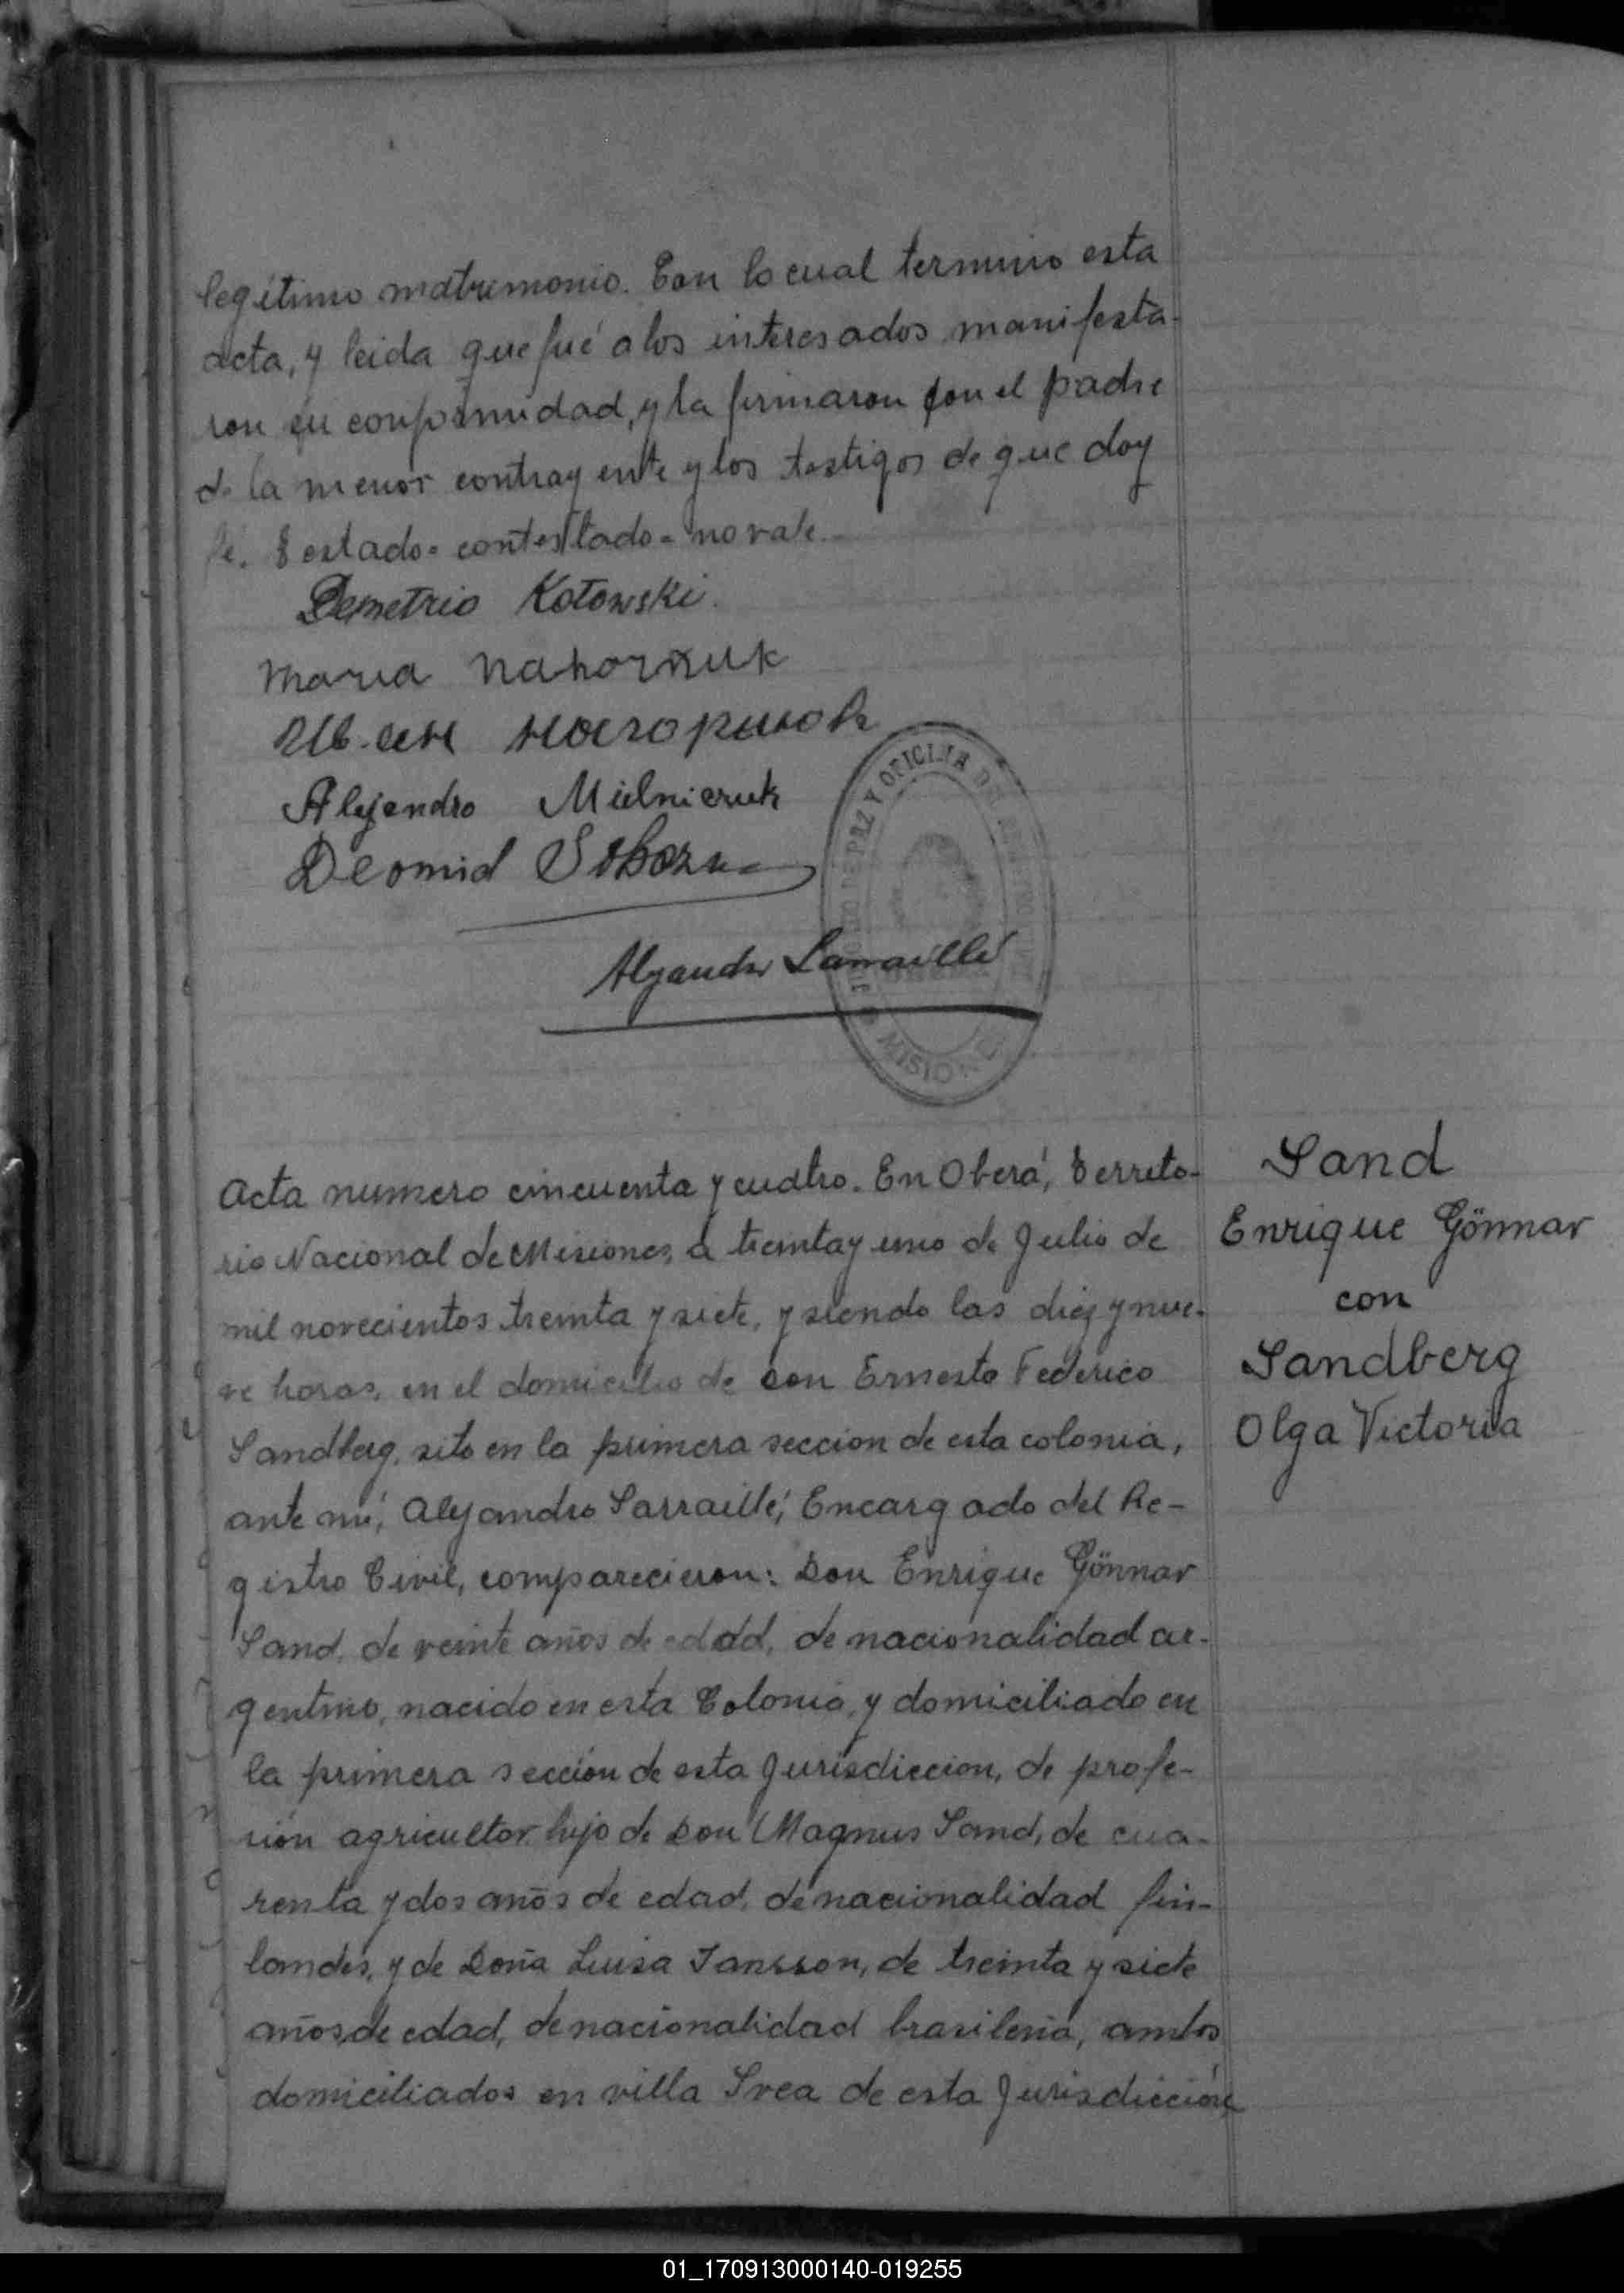 legítimo matrimonio. Con lo cual termino esta
acta, y leida que fué a los interesados manifesta-
ron su conformidad, y la firmaron con el padre
de la menor contrayente y los testigos de que doy
fé. Testado = contestado = no vale.
Demetrio Kotowski
Maria Nahorniuk
Alejandro Mielniczuk
Deomid
Alejandro Sarraillé
MISIONES
Acta numero cincuenta y cuatro. En Oberá, Territo-
rio Nacional de Misiones, a treinta y uno de Julio de
mil novecientos treinta y siete, y siendo las diez y nue-
ve horas, en el domicilio de Don Ernesto Federico
Sandberg, sito en la primera seccion de esta colonia,
ante mí, Alejandro Sarraillé, Encargado del Re-
gistro Civil, comparecieron: Don Enrique Gönnar
Sand, de veinte años de edad, de nacionalidad ar-
gentino, nacido en esta Colonia, y domiciliado en
la primera sección de esta Jurisdiccion, de profe-
sión agricultor, hijo de Don Magnus Sand, de cua-
renta y dos años de edad, de nacionalidad fin-
landés, y de Doña Luisa Jansson, de treinta y siete
años de edad, de nacionalidad brasileña, ambos
domiciliados en villa Svea de esta Jurisdicción
Sand
Enrique Gönnar
con
Sandberg
Olga Victoria
01_170913000140-019255